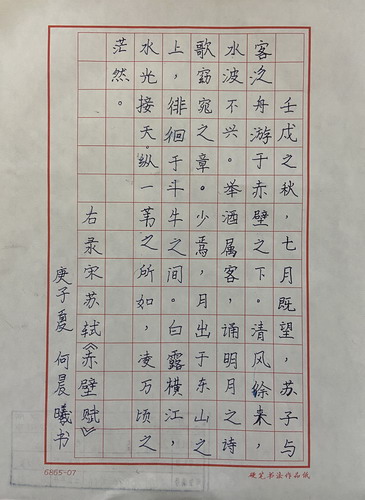 壬戌之秋，七月既望，苏子与
客泛舟游于赤壁之下。清风徐来，
水波不兴。举酒属客，诵明月之诗
歌窈窕之章。少焉，月出于东山之
上，徘徊于斗牛之间。白露横江，
水光接天。纵一苇之所如，凌万顷之
茫然。
右录宋苏轼《赤壁赋》
庚子夏 何晨曦书
6865-07
硬笔书法作品纸